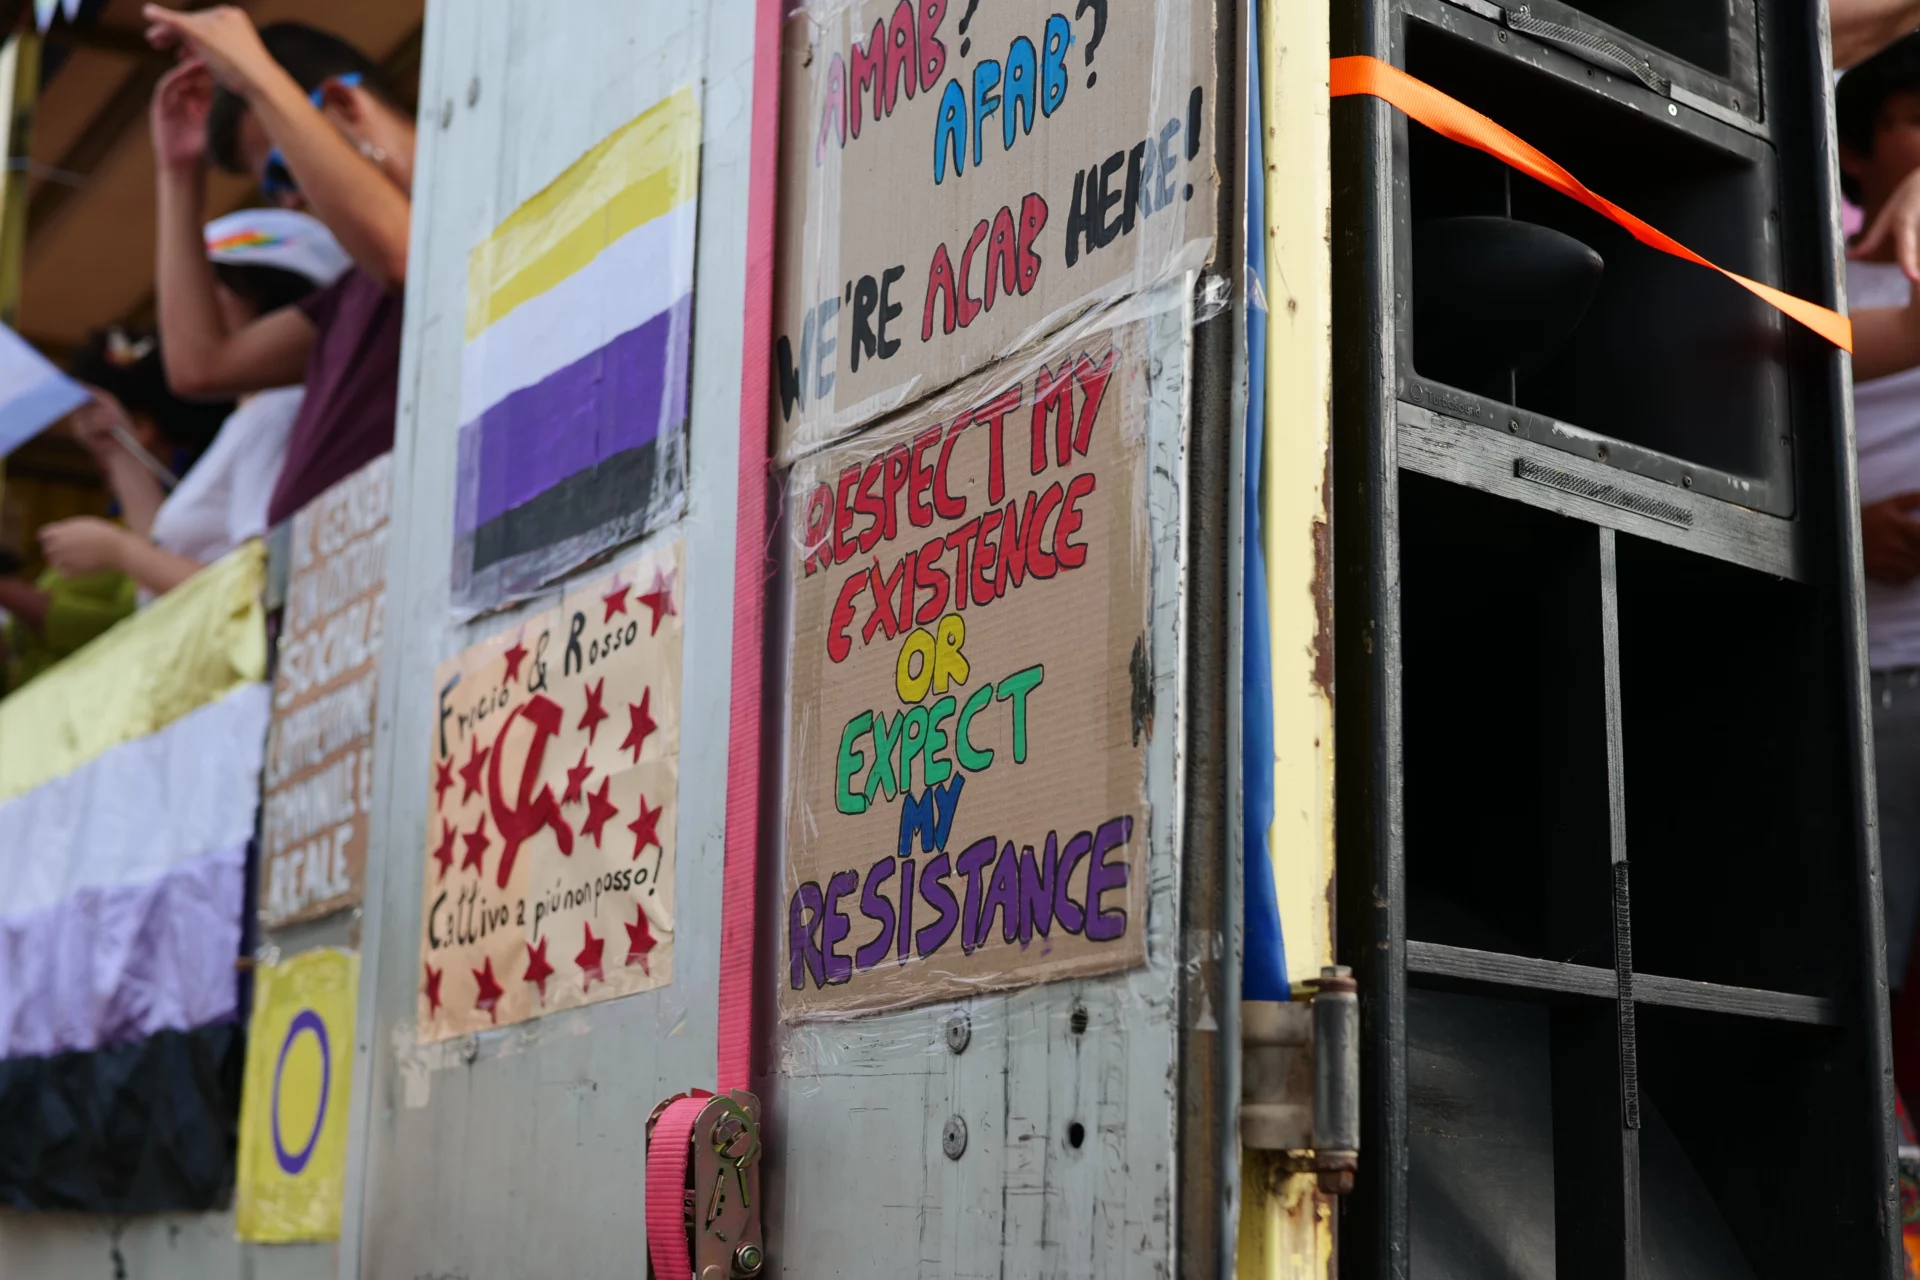 AMAB?
AFAB?
WE'RE ACAB HERE!
RESPECT MY
EXISTENCE
OR
EXPECT
MY
RESISTANCE
Frocio & Rosso
Cattivo a più non posso!
IL GENERE
SOCIALE
REALE
Turbosound